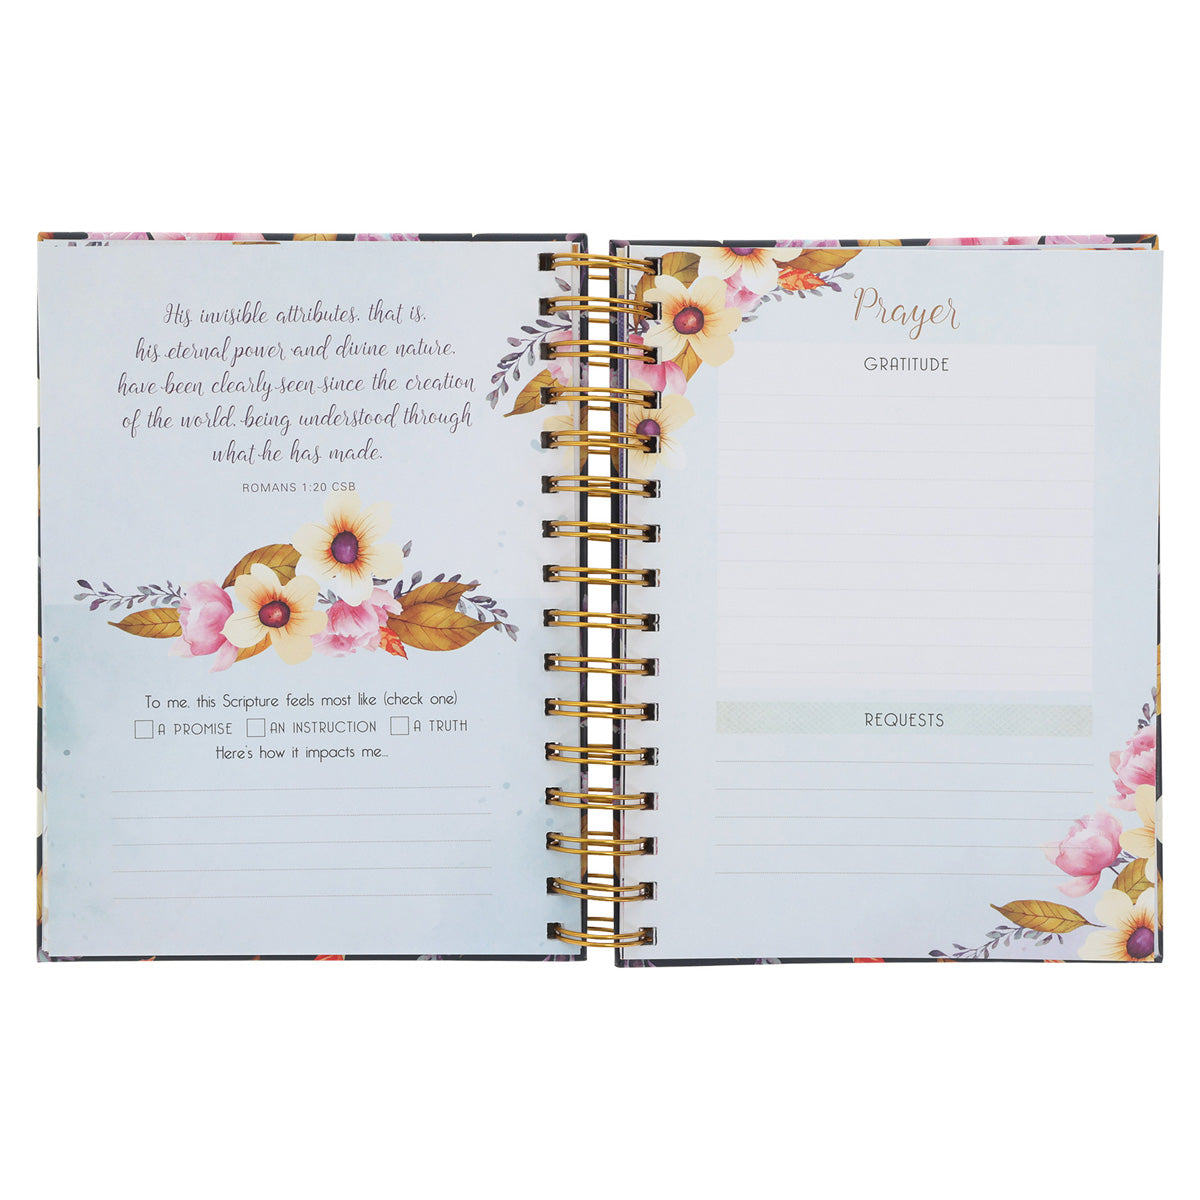 His invisible attributes, that is,
his eternal power and divine nature,
have been clearly seen since the creation
of the world, being understood through
what he has made.
ROMANS 1:20 CSB
To me, this Scripture feels most like (check one)
A PROMISE AN INSTRUCTION A TRUTH
Here's how it impacts me...
Prayer
GRATITUDE
REQUESTS